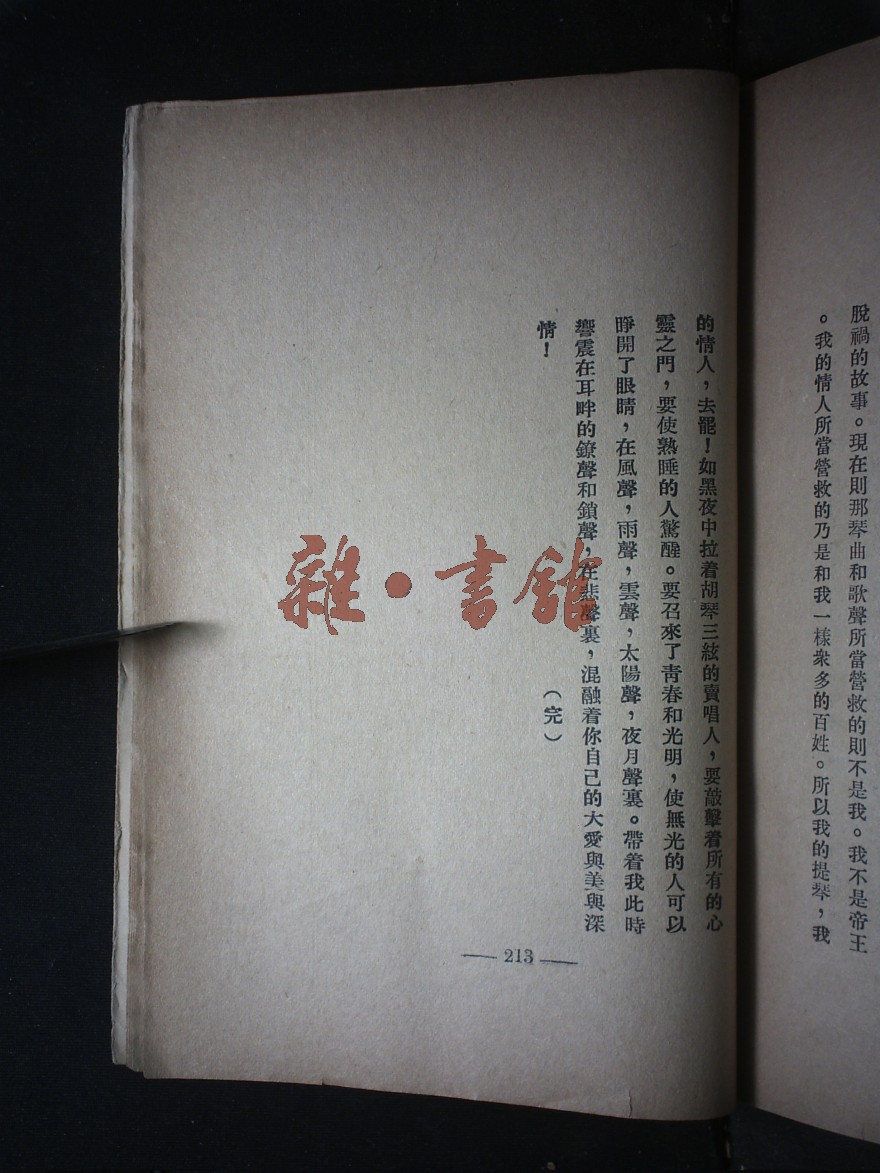 脫禍的故事。現在則那琴曲和歌聲所當營救的則不是我。我不是帝王
。我的情人所當營救的乃是和我一樣衆多的百姓。所以我的提琴，我
的情人，去罷！如黑夜中拉着胡琴三絃的賣唱人，要敲擊着所有的心
靈之門，要使熟睡的人驚醒。要召來了青春和光明，使無光的人可以
睜開了眼睛，在風聲，雨聲，雲聲，太陽聲，夜月聲裏。帶着我此時
響震在耳畔的鐐聲和鎖聲，在悲聲裏，混融着你自己的大愛與美與深
情！
（完）
— 213 —
雜·書館